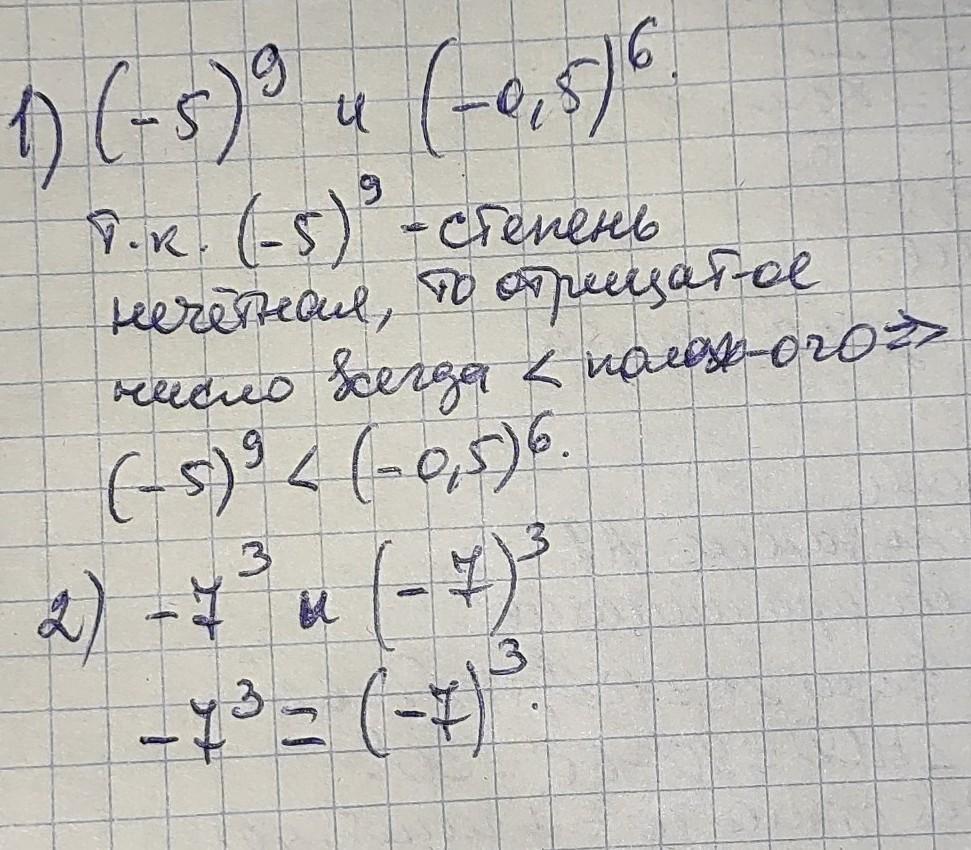 1) (-5)⁹ и (-0,5)⁶.
т.к. (-5)⁹ - степень
нечётная, то отрицат-ое
число всегда < полож-ого =>
(-5)⁹ < (-0,5)⁶.
2) -7³ и (-7)³
-7³ = (-7)³.